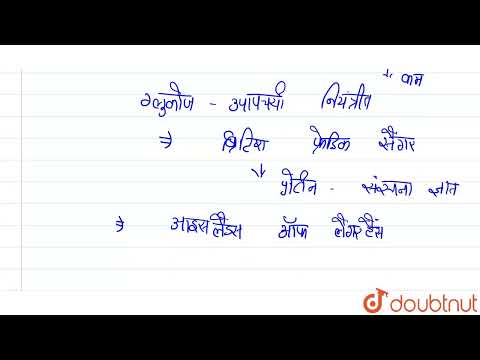 ↓ कम
ग्लुकोज - उपापचयी नियंत्रीत
⇒ ब्रिटिश फ्रेडिक सैंगर
↓ प्रोटीन - संरचना ज्ञात
⇒ आइसलैंडस ऑफ लैंगरहैंस
doubtnut